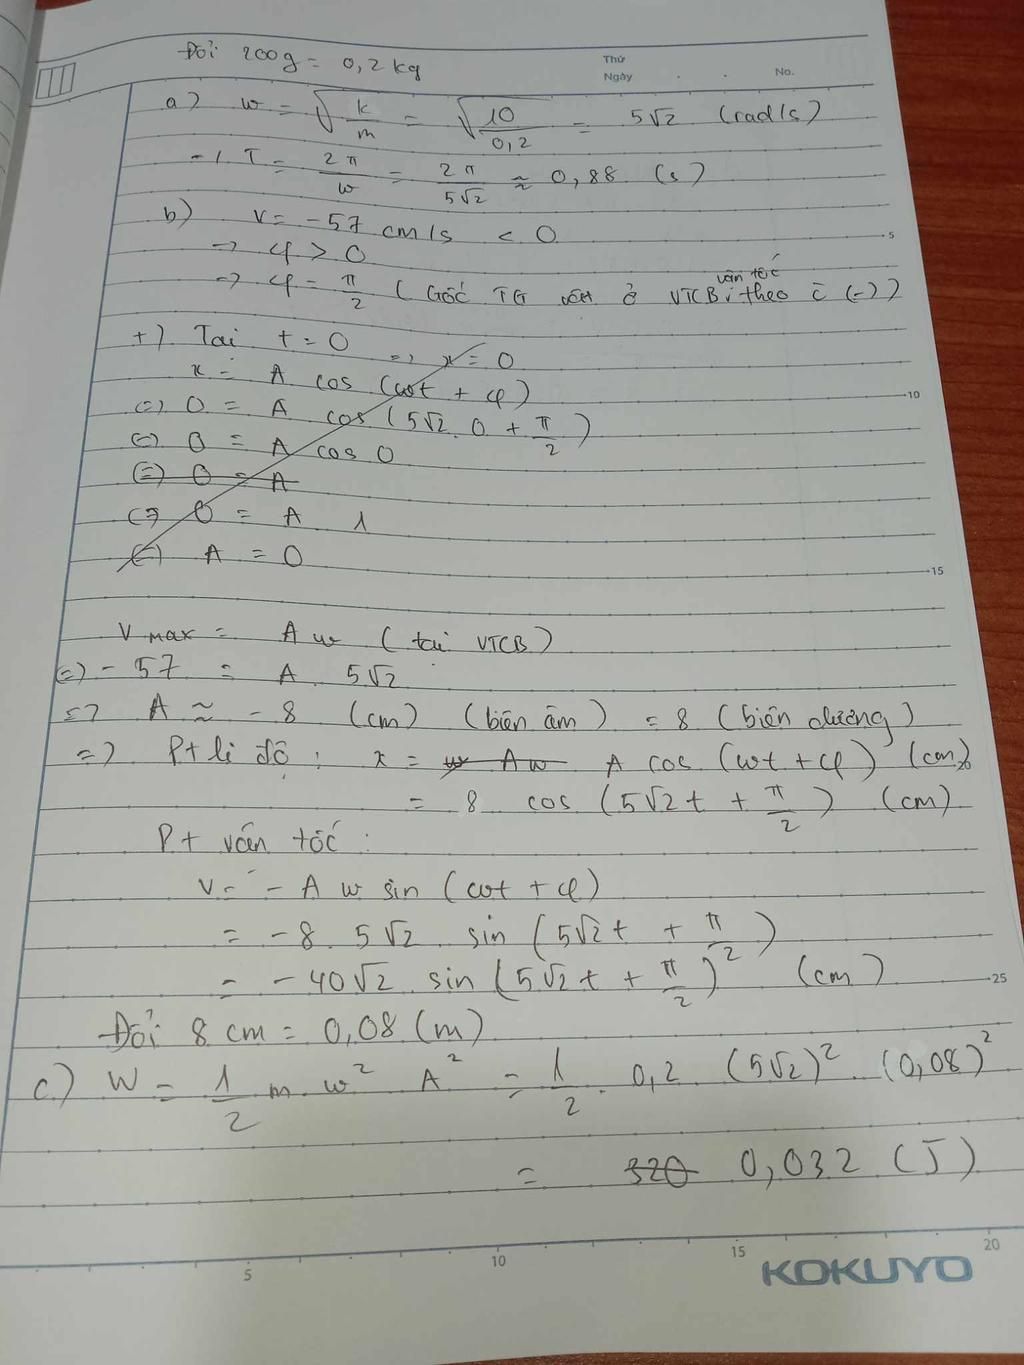 Đổi 200g = 0,2 kg
Thứ
Ngày
No.
a) w = √(k/m) = √(10/0,2) = 5√2 (rad/s)
T = 2π/w = 2π/5√2 ≈ 0,88 (s)
b) v = -57 cm/s < 0
→ φ > 0
→ φ = π/2 (Gốc TG vật ở VTCB, vận tốc theo c (-))
+) Tại t = 0 => x = 0
x = A cos (wt + φ)
(=) 0 = A cos (5√2. 0 + π/2)
(=) 0 = A cos 0
(=) 0 = A
(=) 0 = A 1
(=) A = 0
V max = A w (tại VTCB)
(=) -57 = A. 5√2
=> A ≈ -8 (cm) (biên âm) = 8 (biên dương)
=> P+ li độ: x = w Aw A cos (wt + φ) (cm)
= 8 cos (5√2t + π/2) (cm)
P+ vận tốc:
v = - A w sin (wt + φ)
= -8. 5√2. sin (5√2t + π/2)
= -40√2. sin (5√2t + π/2) (cm)
Đổi 8 cm = 0,08 (m)
c.) W = 1/2 m w² A² = 1/2. 0,2. (5√2)². (0,08)²
= 320 0,032 (J)
5 10 15 20
5
10
15
20
25
KOKUYO